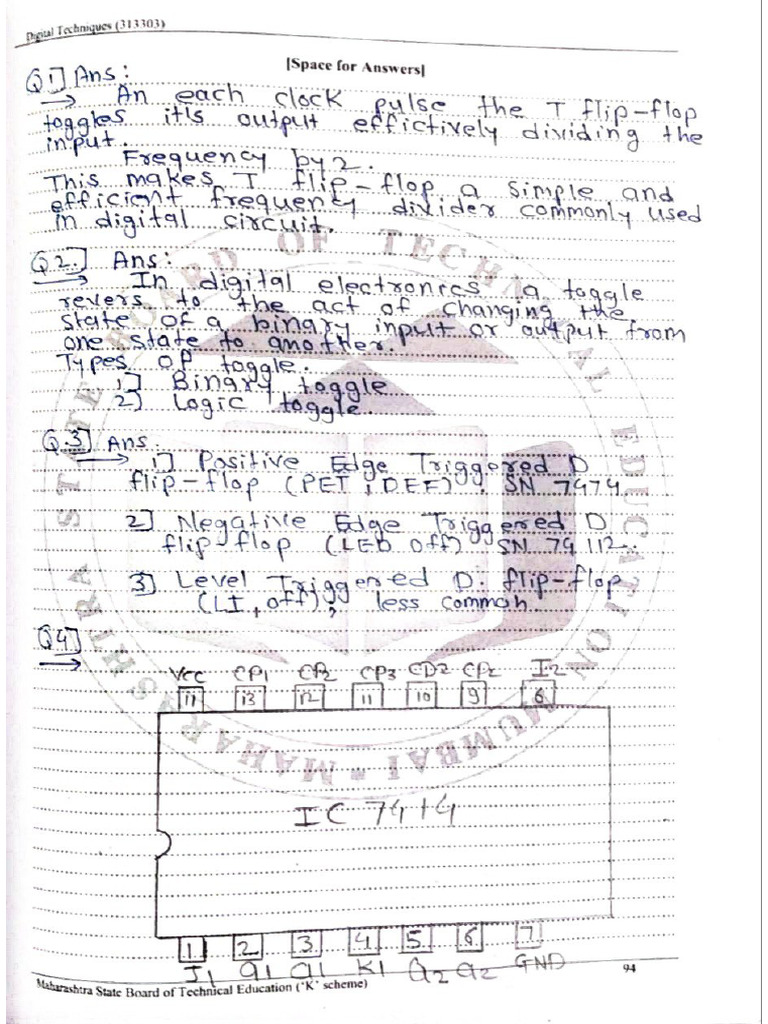 Digital Techniques (313303)
[Space for Answers]
Q1] Ans:
→ An each clock pulse the T flip-flop
toggles it's output effictively dividing the
input.
Frequency by 2.
This makes T flip-flop a simple and
efficient frequency divider commonly used
in digital circuit.
Q2.] Ans:
→ In digital electronics a toggle
revers to the act of changing the
state of a binary input or output from
one state to another.
Types of toggle.
1] Binary toggle
2] Logic toggle.
Q.3] Ans.
→ 1] Positive Edge Triggered D
flip-flop (PET, DEF). SN 7474
2] Negative Edge Triggered D
flip-flop (LED Off) SN 74 112.
3] Level Triggened D. flip-flop
(LI, off); less common.
Q4]
→
Vcc CP1 CP2 CP3 CD2 CP2 I2
11 13 12 11 10 9 8
IC 7414
1 2 3 4 5 6 7
J1 Q1 Q1 K1 Q2 Q2 GND
94
Maharashtra State Board of Technical Education ('K' scheme)
MAHARASHTRA STATE BOARD OF TECHNICAL EDUCATION MUMBAI